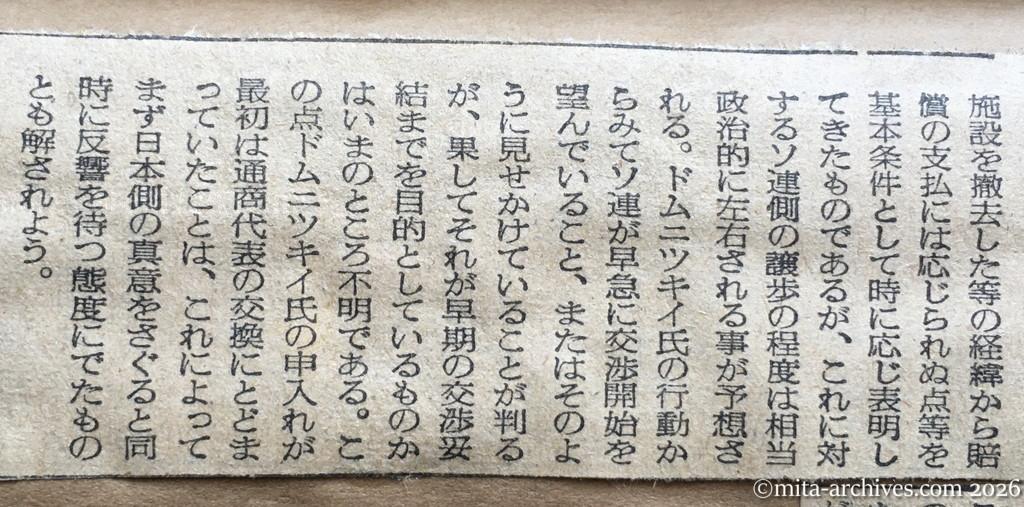 施設を撤去した等の経緯から賠
償の支払には応じられぬ点等を
基本条件として時に応じ表明し
てきたものであるが、これに対
するソ連側の譲歩の程度は相当
政治的に左右される事が予想さ
れる。ドムニツキイ氏の行動か
らみてソ連が早急に交渉開始を
望んでいること、またはそのよ
うに見せかけていることが判る
が、果してそれが早期の交渉妥
結までを目的としているものか
はいまのところ不明である。こ
の点ドムニツキイ氏の申入れが
最初は通商代表の交換にとどま
っていたことは、これによって
まず日本側の真意をさぐると同
時に反響を待つ態度にでたもの
とも解されよう。
©mita-archives.com 2026